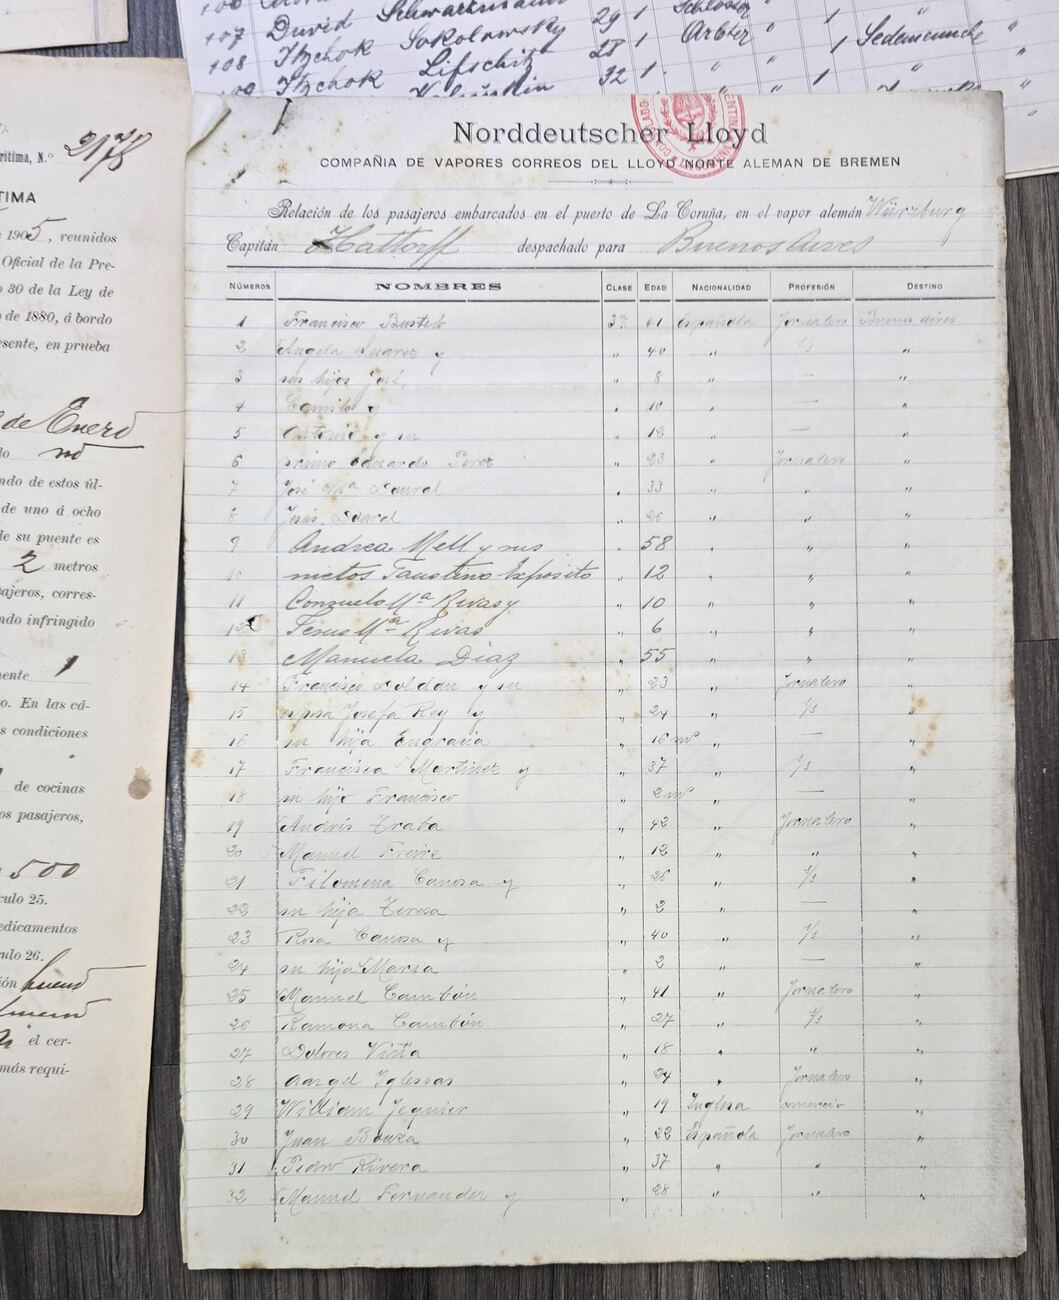 107 David Schwartzmann 29 1 Schlosser " 1 "
108 Itzchok Sokolowsky 28 1 Arbter " 1 Sedemcunche "
109 Itzchok Lifschitz 32 1 " " 1 "
rítima, N.º 2178
TIMA
1905, reunidos
Oficial de la Pre-
30 de la Ley de
de 1880, á bordo
esente, en prueba
de Enero
lo no
ndo de estos úl-
de uno á ocho
de su puente es
2 metros
sajeros, corres-
ndo infringido
mente 1
o. En las cá-
s condiciones
de cocinas
os pasajeros,
500
culo 25.
edicamentos
ulo 26.
ión bueno
el cer-
más requi-
Norddeutscher Lloyd
COMPAÑIA DE VAPORES CORREOS DEL LLOYD NORTE ALEMAN DE BREMEN
Relación de los pasajeros embarcados en el puerto de La Coruña, en el vapor alemán Würzburg
Capitán Hattorff despachado para Buenos Aires
NÚMEROS NOMBRES CLASE EDAD NACIONALIDAD PROFESIÓN DESTINO
1 Francisco Bustelo 3ª 41 Española Jornalero Buenos aires
2 Angela Suarez y " 40 " "
3 sus hijos José, " 8 " — "
4 Camilo y " 10 " — "
5 Antonio y su " 12 " — "
6 primo Eduardo Perez " 23 " Jornalero "
7 José Mª Doural " 33 " " "
8 Jesús Doural " 20 " " "
9 Andrea Mell y sus " 58 " " "
10 nietos Faustino Exposito " 12 " " "
11 Consuelo Mª Rivas y " 10 " " "
12 Jesus Mª Rivas " 6 " " "
13 Manuela Diaz " 55 " " "
14 Francisco Doldan y su " 23 " Jornalero "
15 esposa Josefa Rey y " 24 " "
16 su hija Engracia " 16 mˢ " — "
17 Francisca Martinez y " 37 " "
18 su hijo Francisco " 2 mˢ " — "
19 Andrés Traba " 42 " Jornalero "
20 Manuel Freire " 12 " " "
21 Filomena Canosa y " 26 " "
22 su hija Teresa " 2 " — "
23 Rosa Canosa y " 40 " "
24 su hija Maria " 2 " — "
25 Manuel Cambón " 41 " Jornalero "
26 Ramona Cambón " 27 " "
27 Dolores Viña " 18 " " "
28 Angel Yglesias " 24 " Jornalero "
29 William Jequier " 19 Inglesa comercio "
30 Juan Bouza " 22 Española Jornalero "
31 Pedro Rivera " 37 " " "
32 Manuel Fernandez y " 28 " " "